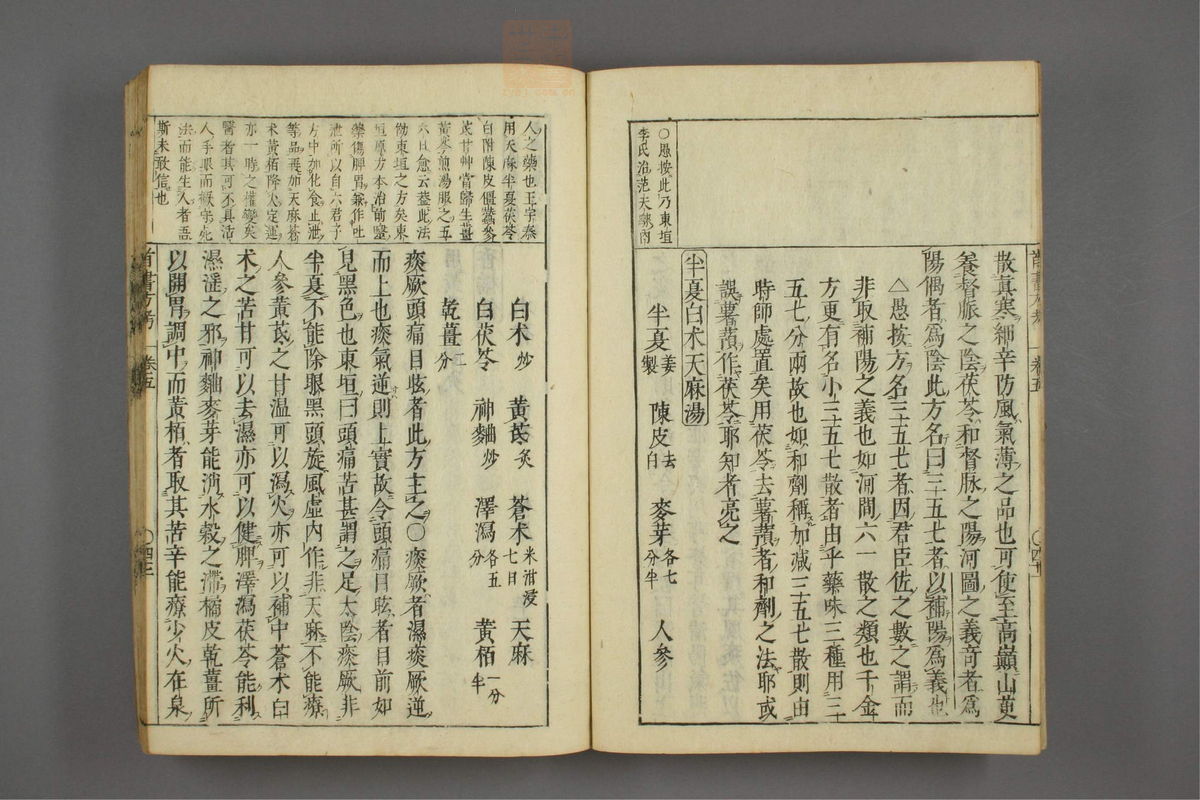 散真寒細辛防風氣薄之品也可使至高巔山萸
養督脈之陰茯苓和督脉之陽河圖之義奇者爲
陽偶者爲陰此方名曰三五七者以補陽爲義也
△愚按方名三五七者因君臣佐之數之謂而
非取補陽之義也如河間六一散之類也千金
方更有名小三五七散者由乎藥味三種用三
五七分兩故也如和劑稱加减三五七散則由
時師處置矣用茯苓去薯蕷者和劑之法耶或
誤薯蕷作茯苓耶知者亮之
○愚按此乃東垣
李氏治范夫人藥內
半夏白术天麻湯
半夏姜製 陳皮去白 麥芽各七分半 人參
人之藥也王宇泰
用天麻半夏茯苓
白附陳皮僵蠶參
芪甘艸當歸生薑
黃芩煎湯服之五
六日愈云蓋此法
倣東垣之方矣東
垣原方本治前醫
藥傷脾胃兼作吐
泄所以自六君子
方中加化食止泄
等品再加天麻蒼
术黃栢降火定運
亦一時之權變矣
醫者其可不具活
人手眼而檄守死
法而能生人者吾
斯未敢信也
白术炒 黃芪炙 蒼术米泔浸七日 天麻
白茯苓 神麯炒 澤瀉各五分 黃栢一分半
乾薑二分
痰厥頭痛目眩者此方主之○痰厥者濕痰厥逆
而上也痰氣逆則上實故令頭痛目眩者目前如
見黑色也東垣曰頭痛苦甚謂之足太陰痰厥非
半夏不能除眼黑頭旋風虛內作非天麻不能療
人參黃芪之甘温可以瀉火亦可以補中蒼术白
术之苦甘可以去濕亦可以健脾澤瀉茯苓能利
濕淫之邪神麯麥芽能消水穀之滯橘皮乾薑所
以開胃調中而黃栢者取其苦辛能療少火在泉
首書方考 卷五 ○四十二